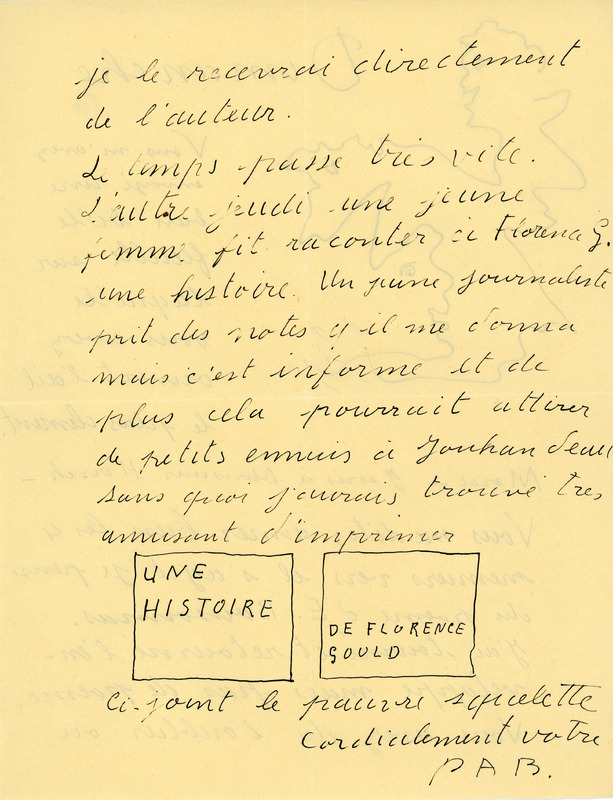 je le recevrai directement
de l'auteur.
Le temps passe très vite.
L'autre jeudi une jeune
femme fit raconter à Florence G.
une histoire. Un jeune journaliste
prit des notes q'il me donna
mais c'est informe et de
plus cela pourrait attirer
de petits ennuis à Jouhandeau
sans quoi j'aurais trouvé très
amusant d'imprimer
UNE
HISTOIRE
DE FLORENCE
GOULD
Ci-joint le pauvre squelette
Cordialement votre
PAB.